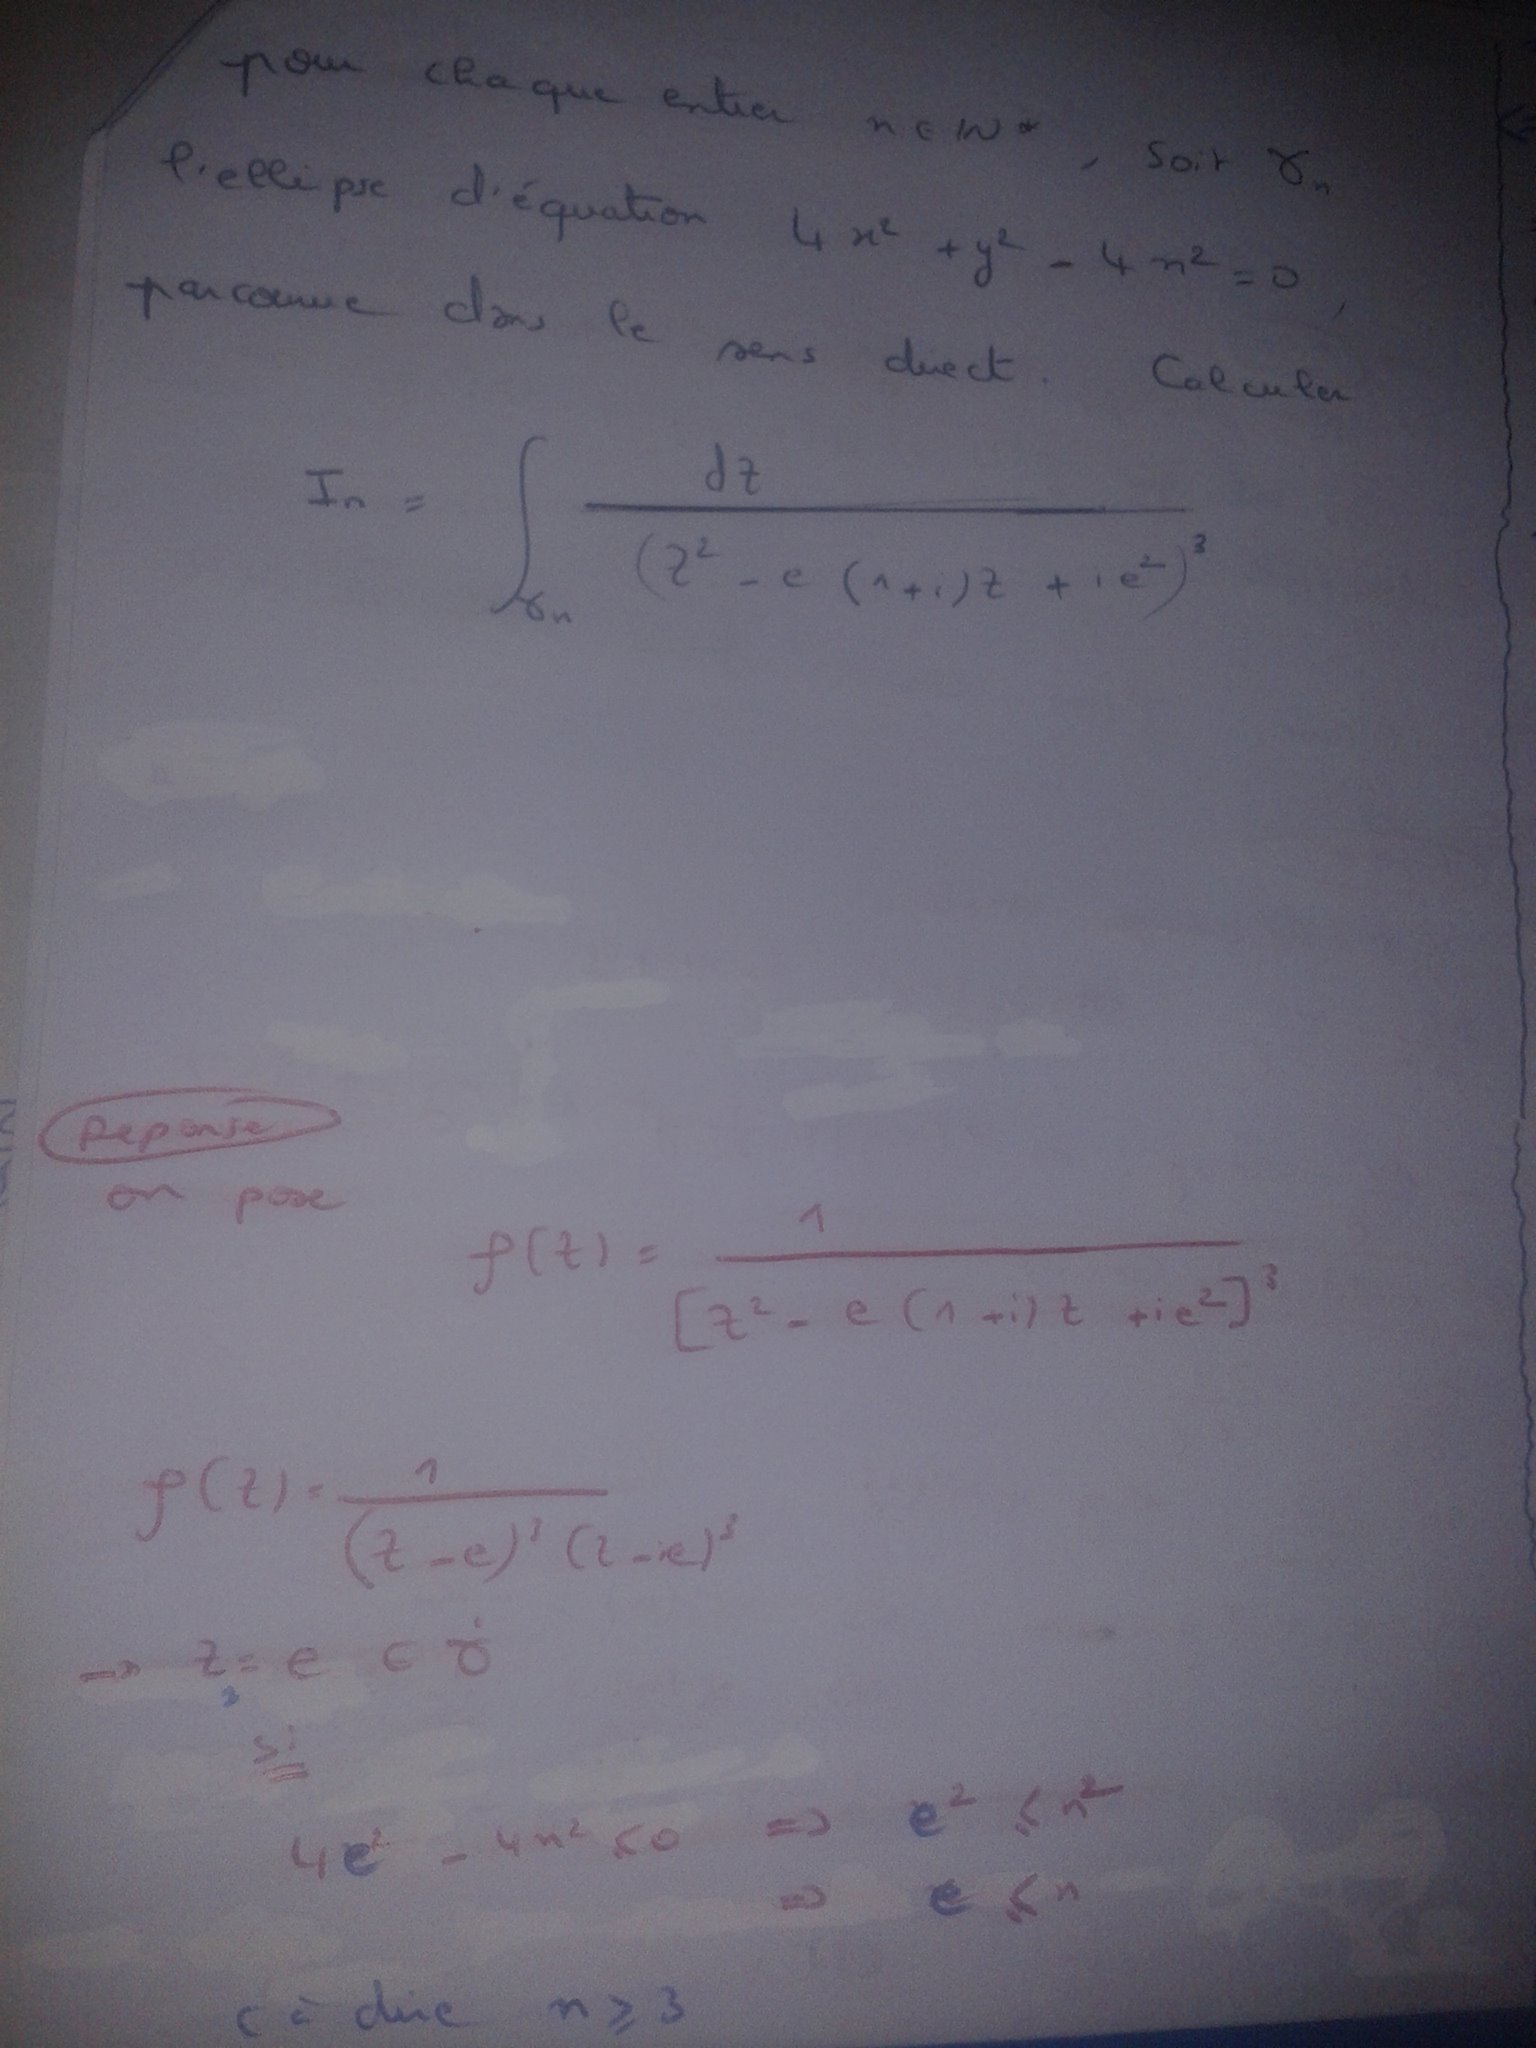 pour chaque entier n ∈ IN*, soit γₙ
l'ellipse d'équation 4x² + y² - 4n² = 0,
parcourue dans le sens direct. Calculer
Iₙ = ∫_γₙ dz / (z² - e(1+i)z + ie²)³
Reponse
on pose
f(z) = 1 / [z² - e(1+i)z + ie²]³
f(z) = 1 / (z-e)³(z-ie)³
→ z = e ∈ γ
si
4e² - 4n² ≤ 0 => e² ≤ n²
=> e ≤ n
c à dire n ≥ 3